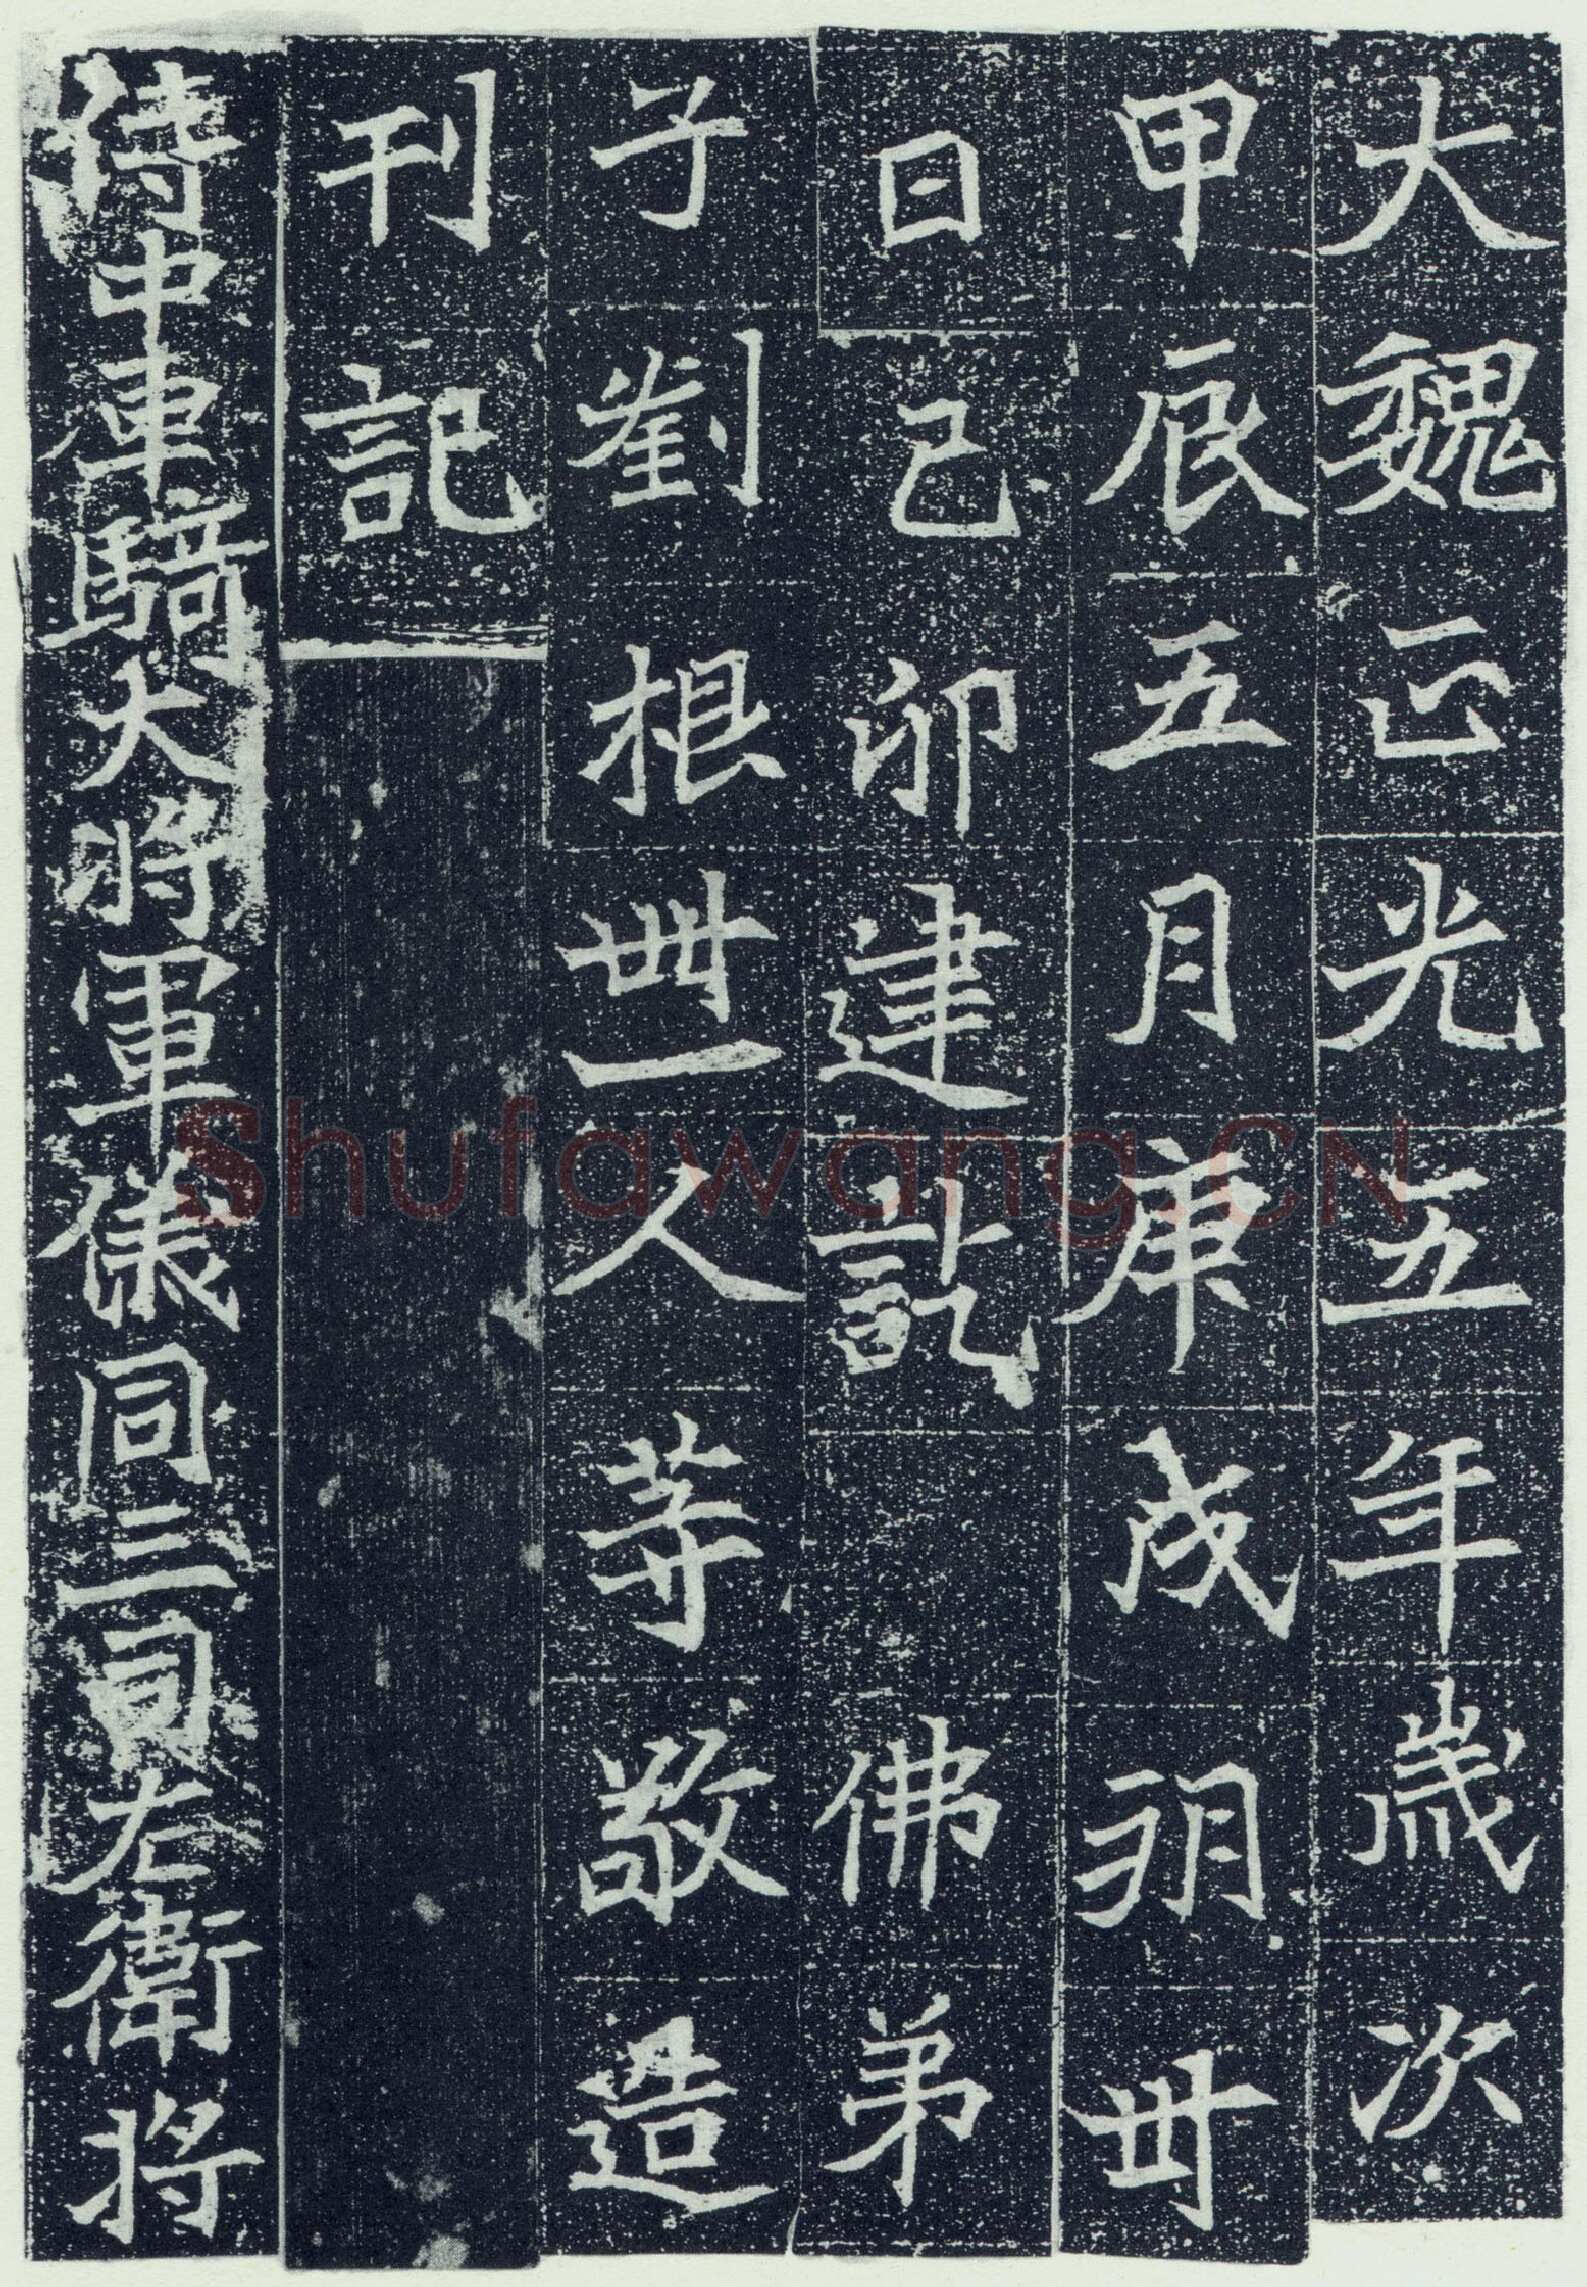 大魏正光五年歲次
甲辰五月庚戌朔卅
日己卯建訖佛弟
子劉根卌一人等敬造
刊記
侍中車騎大將軍儀同三司左衛將
Shufawang.CN